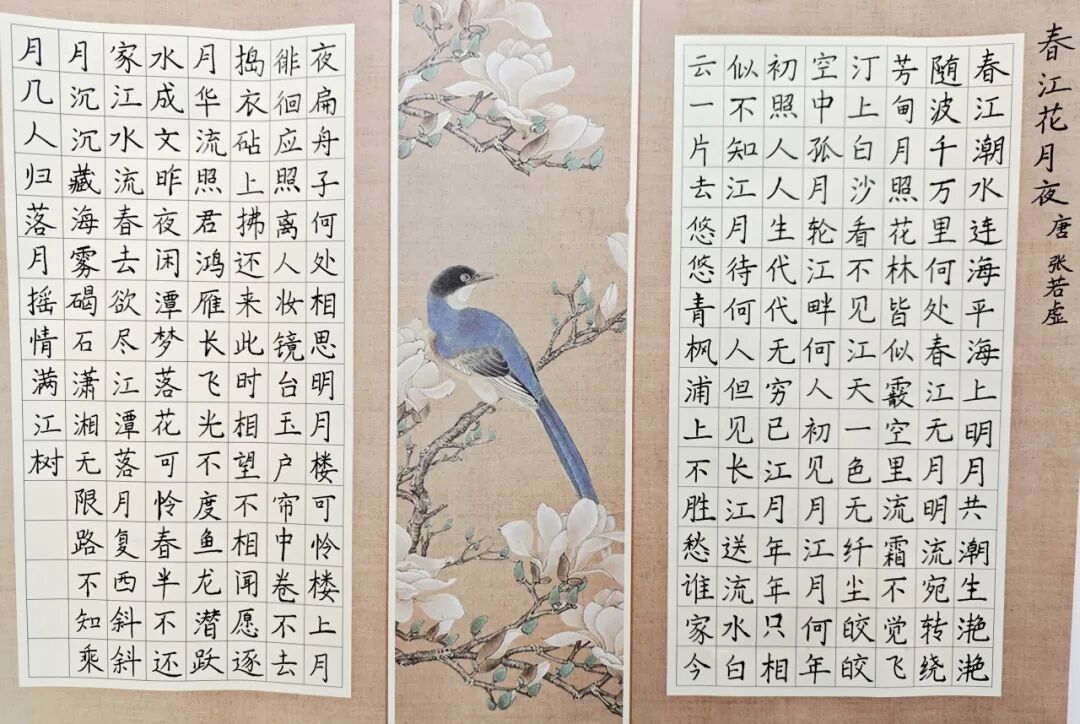 春江花月夜 唐 张若虚
春江潮水连海平海上明月共潮生滟滟
随波千万里何处春江无月明流宛转绕
芳甸月照花林皆似霰空里流霜不觉飞
汀上白沙看不见江天一色无纤尘皎皎
空中孤月轮江畔何人初见月江月何年
初照人人生代代无穷已江月年年只相
似不知江月待何人但见长江送流水白
云一片去悠悠青枫浦上不胜愁谁家今
夜扁舟子何处相思明月楼可怜楼上月
徘徊应照离人妆镜台玉户帘中卷不去
捣衣砧上拂还来此时相望不相闻愿逐
月华流照君鸿雁长飞光不度鱼龙潜跃
水成文昨夜闲潭梦落花可怜春半不还
家江水流春去欲尽江潭落月复西斜斜
月沉沉藏海雾碣石潇湘无限路不知乘
月几人归落月摇情满江树